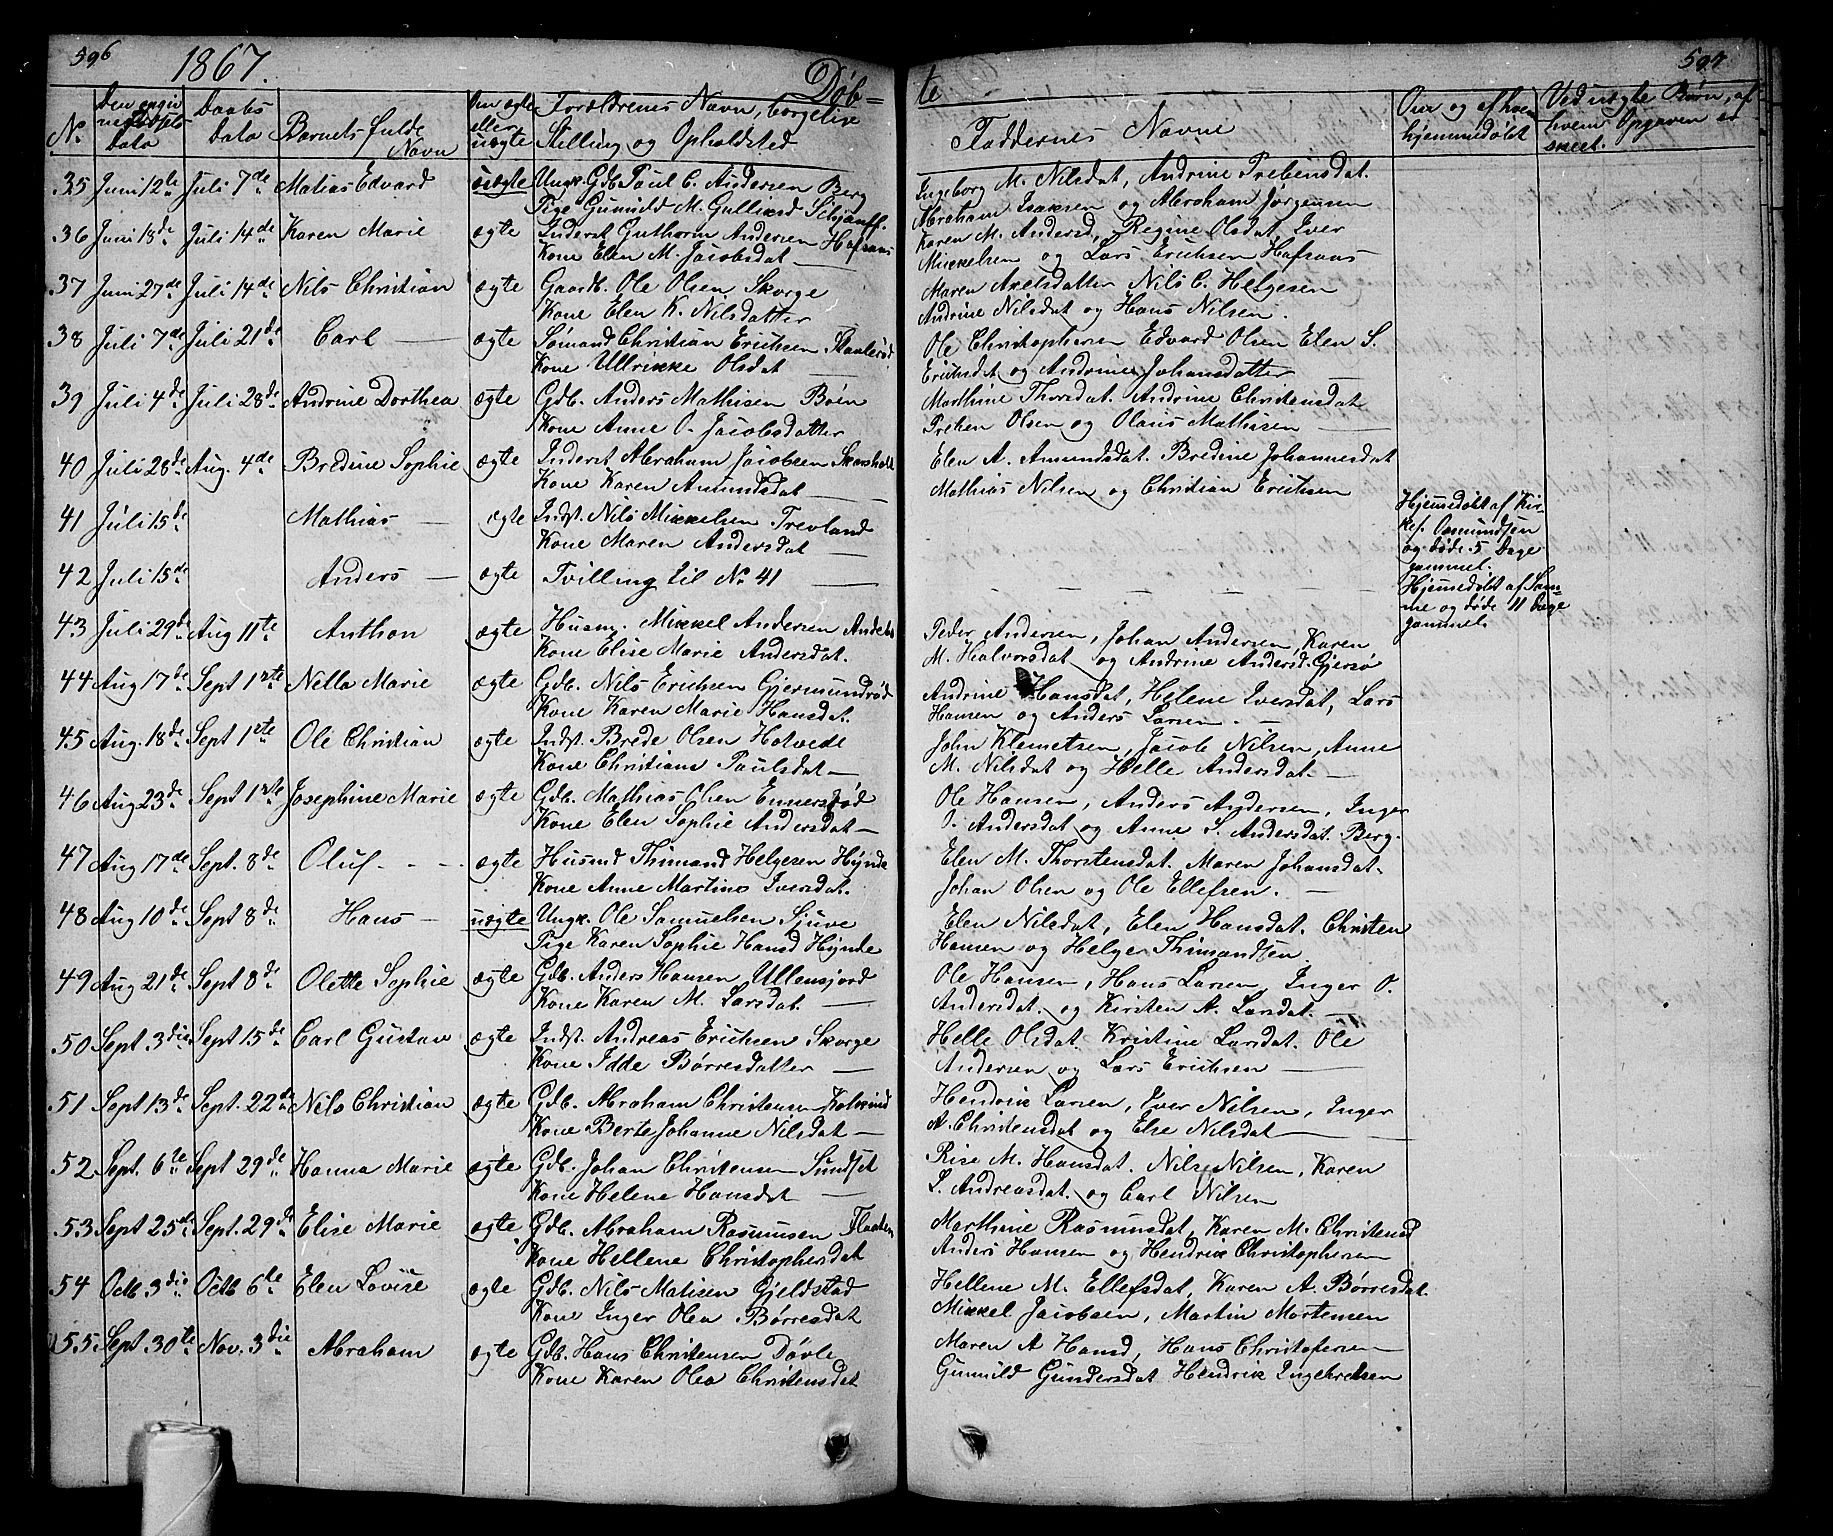 596
1867.
Døb-
№
Den angivne Fødsels Dato
Daabs Dato
Barnets fulde Navn
Om ægte eller uægte
Forældrenes Navn, borgelige Stilling og Opholdsted
35 Juni 12te Juli 7de Matias Edvard uægte Ungk. Gdb. Paul C. Andersen Berg
Pige Gunnild M. Gulliksd
36 Juni 18de Juli 14de Karen Marie ægte Inderst Guthorm Andersen Hafsaas
Kone Elen M. Jacobsdat —
37 Juni 27de Juli 14de Nils Christian ægte Gaardb. Ole Olsen Skorge
Kone Elen K. Nilsdatter
38 Juli 7de Juli 21de Carl — ægte Sømand Christian Erichsen
Kone Ullrikke Olsdat —
39 Juli 4de Juli 28de Andrine Dorthea ægte Gdb. Anders Mathisen Boen
Kone Anne O. Jacobsdatter
40 Juli 28de Aug. 4de Bredine Sophie ægte Inderst Abraham Jacobsen
Kone Karen Amundsdat —
41 Juli 15de Mathias — ægte Indst. Nils Mikkelsen Trevland
Kone Maren Andersdat —
42 Juli 15de Anders — ægte Tvilling til No 41 —
43 Juli 29de Aug 11te Anthon ægte Husm. Mikkel Andersen
Kone Elise Marie Andersdat.
44 Aug 17de Sept 1ste Nella Marie ægte Gdb. Nils Erichsen Gjermundrød
Kone Karen Marie Hansdat.
45 Aug. 18de Sept 1ste Ole Christian ægte Indst. Brede Olsen Holvedt
Kone Christiane Paulsdat —
46 Aug 23de Sept 1ste Josephine Marie ægte Gdb. Mathias Olsen Ennersrød
Kone Elen Sophie Andersdat —
47 Aug 17de Sept. 8de Oluf - - - ægte Husmd Thimand Helgesen Hynde
Kone Anne Martine Iversdat.
48 Aug 10de Sept 8de Hans — uægte Ungk. Ole Samuelsen Sjuve
Pige Karen Sophie Hansd Hynde
49 Aug 21de Sept 8de Olette Sophie ægte Gdb. Anders Hansen Ullensjord
Kone Karen M. Larsdat. —
50 Sept 3die Sept 15de Carl Gustav ægte Indst. Andreas Erichsen Skorge
Kone Idde Børresdatter —
51 Sept 13de Sept. 22de Nils Christian ægte Gdb. Abraham Christensen
Kone Berte Johanne Nilsdat —
52 Sept. 6te Sept 29de Hanna Marie ægte Gdb. Johan Christensen Sundset
Kone Helene Hansdat —
53 Sept 25de Sept. 29de Elise Marie ægte Gdb. Abraham Rasmusen Flaaten
Kone Hellene Christophersdat
54 Octb 3die Octb 6te Elen Lovise ægte Gdb. Nils Matisen Gjeldstad
Kone Inger Olea Børresdat
55 Sept 30te Nov. 3die Abraham ægte Gdb. Hans Christensen Døvle
Kone Karen Olea Christensdat
te
597
Faddernes Navne
Om og af hvem hjemmedøbt
Ved uægte Børn, af hvem Opgaven er skeet.
Ingeborg M. Nilsdat, Andrine Prebensdat.
Abraham Isaksen og Abraham Jørgensen
Karen M. Andersd, Regine Olsdat, Iver
Mikkelsen og Lars Erichsen Hafsaas
Maren Axelsdatter Nils C. Helgesen
Andrine Nilsdat og Hans Nilsen.
Ole Christophersen Edvard Olsen Elen S.
Erichsdat og Andrine Johansdatter —
Marthine Thorsdat. Andrine Christensdat
Preben Olsen og Olaus Mathisen —
Elen A. Amundsdat. Bredine Johannesdat
Mathias Nilsen og Christian Erichsen
Hjemedøbt af Kirkes. Osmundsen
og døde 5 Dage
gammel.
Hjemedøbt af Samme og døde 11 Dage
gammel.
Peder Andersen, Johan Andersen, Karen
M. Halvorsdat og Andrine Andersd. Gjersø
Andrine Hansdat, Helene Iversdat, Lars
Hansen og Anders Larsen. —
John Klemetsen, Jacob Nilsen, Anne
M. Nilsdat og Helle Andersdat —
Ole Hansen, Anders Andersen, Inger
O. Andersdat og Anne S. Andersdat. Berg.
Elen M. Thorstensdat. Maren Johansdat.
Johan Olsen og Ole Ellefsen. —
Elen Nilsdat, Elen Hansdat. Christen
Hansen og Helge Thimandsen
Ole Hansen, Hans Larsen, Inger O.
Andersdat. og Kirsten A. Larsdat. —
Helle Olsdat. Kristine Larsdat. Ole
Andersen og Lars Erichsen —
Hendrik Larsen, Iver Nilsen, Inger
A. Christensdat og Else Nilsdat —
Rise M. Hansdat. Nils Nilsen, Karen
L. Andreasdat. og Carl Nilsen
Marthine Rasmusdat, Karen M. Christensd
Anders Hansen og Hendrik Christophersen
Hellene M. Ellefsdat, Karen A. Børresdat.
Mikkel Jacobsen, Martin Mortensen
Maren A Hansd, Hans Christofersen
Gunnild Gundersdat Hendrik Ingebretsen